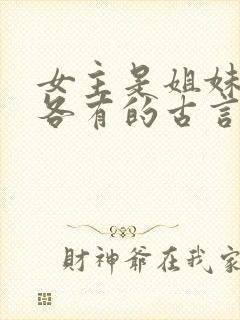 女主是姐妹
各有的古言
財神爺在我家